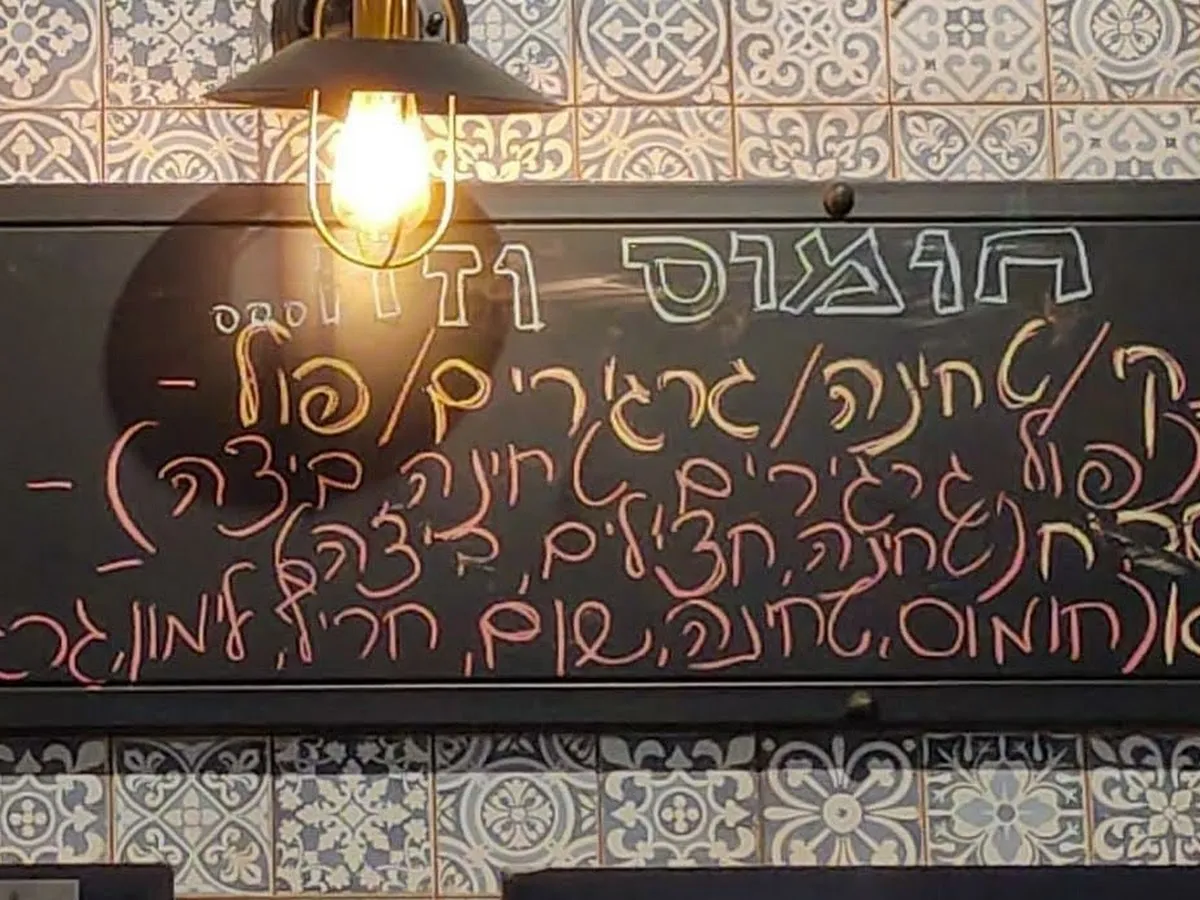 חומוס וזהו...
ק/טחינה/גרגירים/פול -
(פול גרגירים, טחינה, ביצה) -
ח (טחינה, חצילים, ביצה) -
(חומוס, טחינה, שום, חריף, לימון, גר